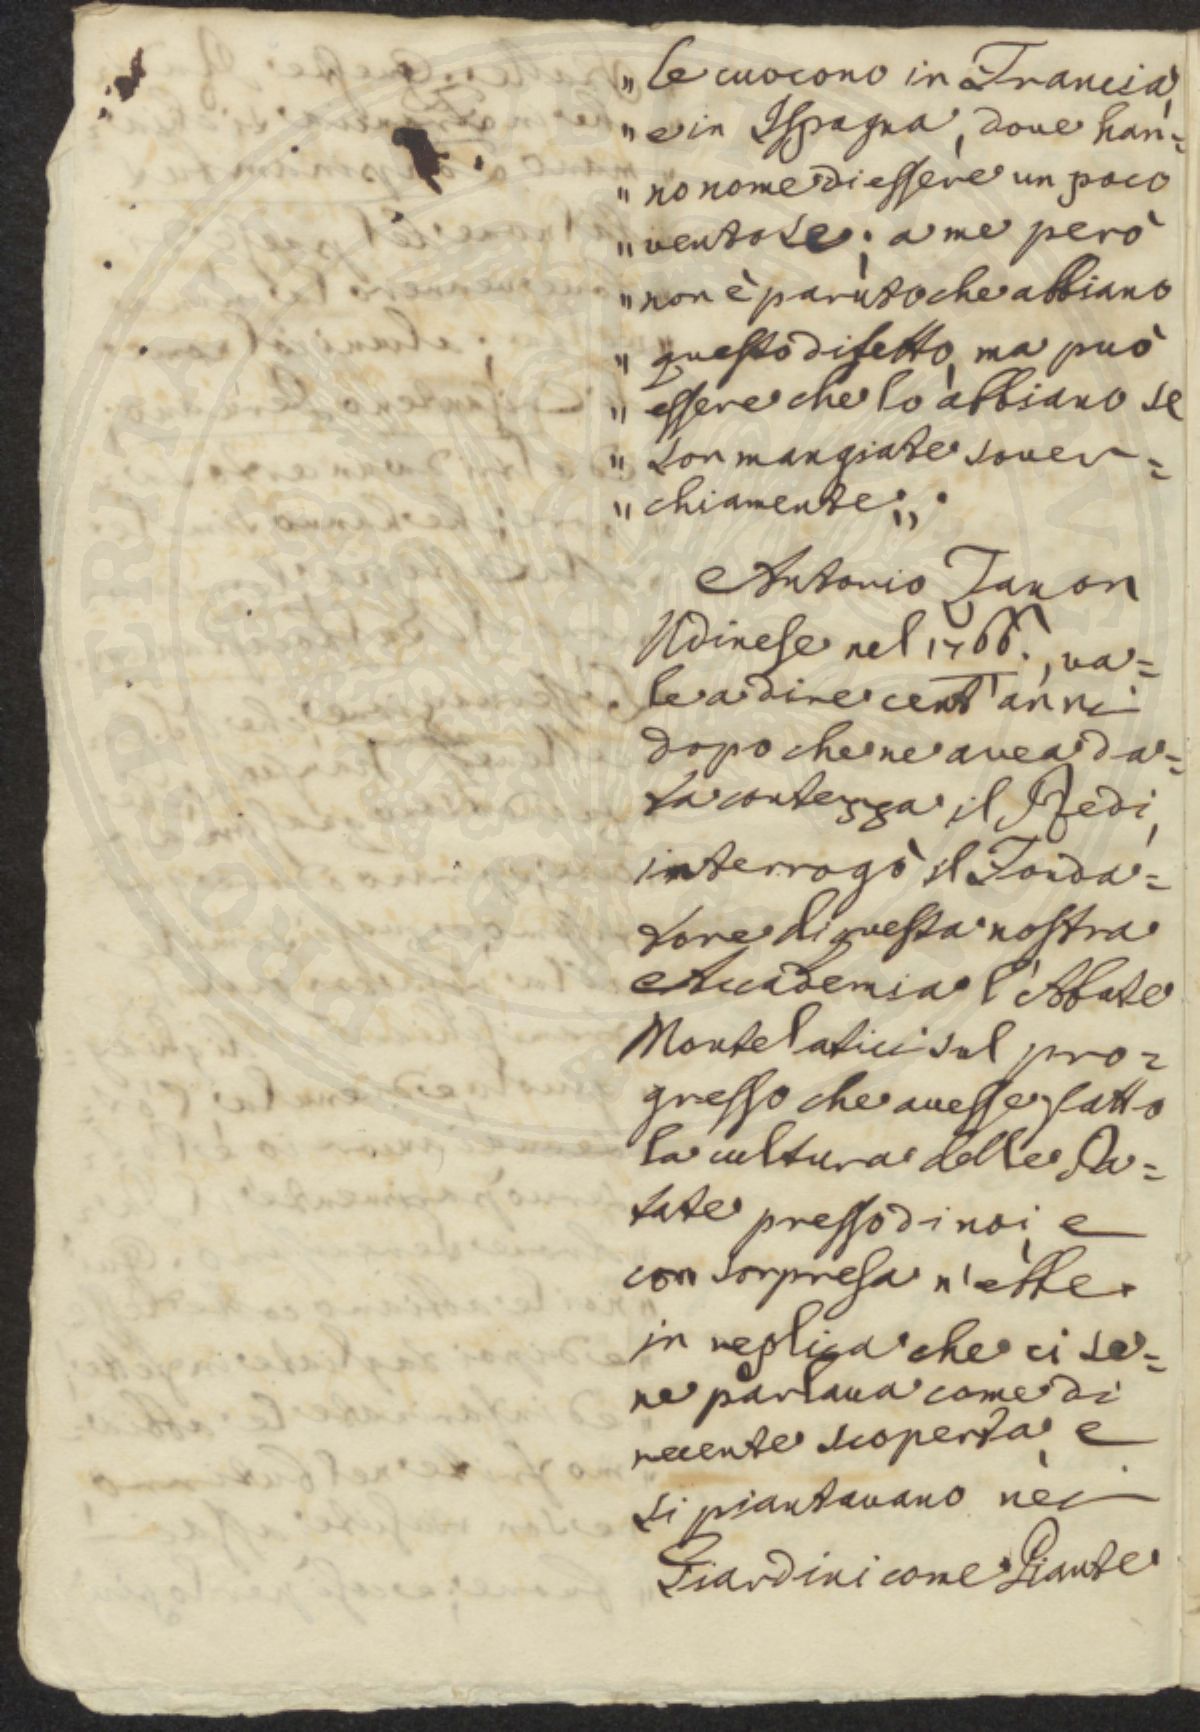 " le cuocono in Francia,
" e in Ispagna, dove han=
" no nome di essere un poco
" ventose; a me però
" non è paruto che abbiano
" questo difetto, ma può
" essere che lo abbiano se
" son mangiate sover=
" chiamente „.
Antonio Zanon
Udinese nel 1766., va=
le a dire cent' anni
dopo che ne avea da=
ta contezza il Redi,
interrogò il Fonda=
tore di questa nostra
Accademia l'Abate
Montelatici sul pro=
gresso che avesse fatto
la cultura delle Pa=
tate presso di noi, e
con sorpresa n' ebbe
in replica che ci se=
ne parlava come di
recente scoperta, e
si piantavano nei
Giardini come Piante